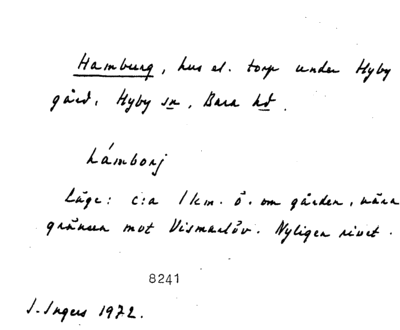 Hamburg, hus el. torp under Hyby
gård, Hyby sn, Bara hd.
hámborj
Läge: c:a 1 km. ö. om gården, nära
gränsen mot Vismarlöv. Nyligen rivet.
8241
I. Ingers 1972.